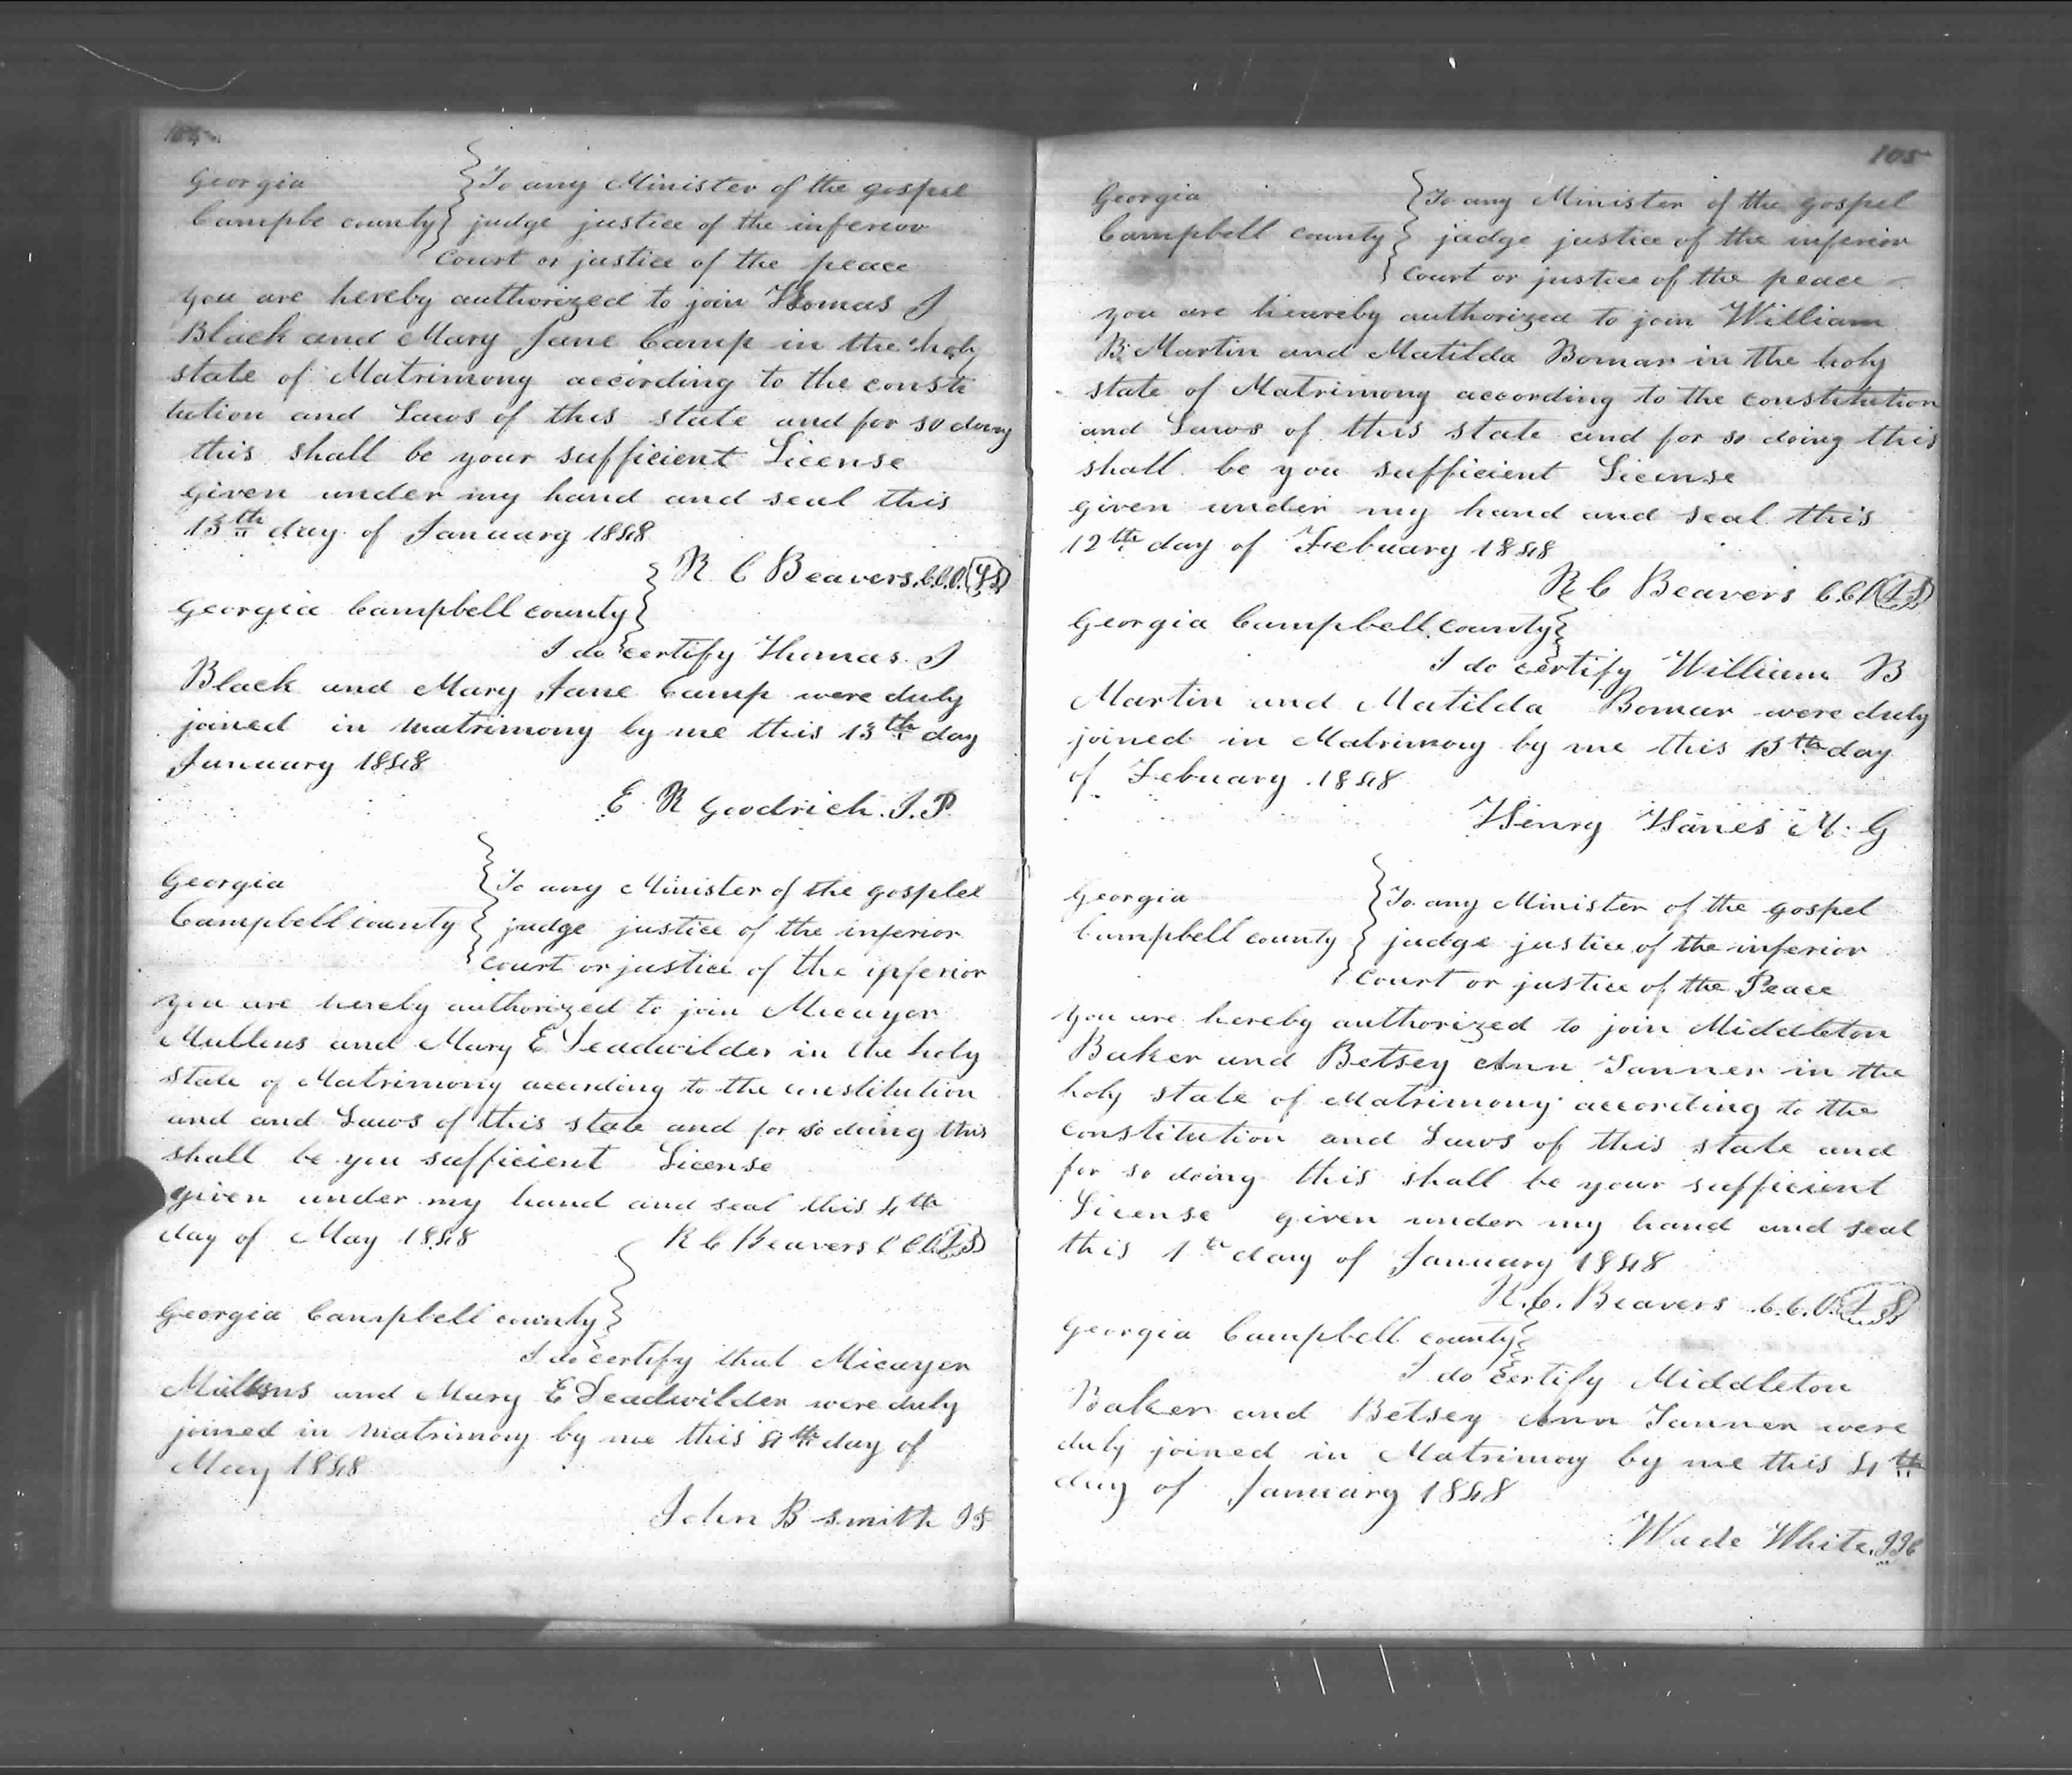 104
Georgia
Campbe county
To any Minister of the gospel
judge justice of the inferior
court or justice of the peace
you are hereby authorized to join Thomas J
Black and Mary Jane Camp in the holy
state of Matrimony according to the consti
tution and Laws of this state and for so doing
this shall be your sufficient License
given under my hand and seal this
13th day of January 1848
R C Beavers C.C.O. LS
Georgia Campbell county
I do certify Thomas J
Black and Mary Jane Camp were duly
joined in matrimony by me this 13th day
January 1848
E R Goodrich J.P.
Georgia
Campbell county
To any Minister of the gosplel
judge justice of the inferior
court or justice of the ipferior
you are hereby authorized to join Micayer
Mullens and Mary E Leadwilder in the holy
state of Matrimony according to the constitution
and and Laws of this state and for so doing this
shall be you sufficient License
given under my hand and seal this 4th
day of May 1848
R C Beavers C C O LS
Georgia Campbell county
I do certify that Micayer
Mullens and Mary E Leadwilder were duly
joined in matrimony by me this 4th day of
May 1848
John B smith JP
105
Georgia
Campbell county
To any Minister of the gospel
judge justice of the inferior
court or justice of the peace
you are heareby authorized to join William
B. Martin and Matilda Bomar in the holy
state of Matrimony according to the constitution
and Laws of this state and for so doing this
shall be you sufficient License
given under my hand and seal this
12th day of Febuary 1848
R C Beavers C.C.O LS
Georgia Campbell county
I do certify William B
Martin and Matilda Bomar were duly
joined in Matrimony by me this 13th day
of Febuary 1848
Henry Hanes M. G
Georgia
Campbell county
To any Minister of the gospel
judge justice of the inferior
court or justice of the Peace
you are hereby authorized to join Middleton
Baker and Betsey Ann Tanner in the
holy state of Matrimony according to the
constitution and Laws of this state and
for so doing this shall be your sufficient
License given under my hand and seal
this 1th day of January 1848
R. C. Beavers C.C.O. LS
Georgia Campbell county
I do certify Middleton
Baker and Betsey Ann Tanner were
duly joined in Matrimoy by me this 4th
day of January 1848
Wade White JJC